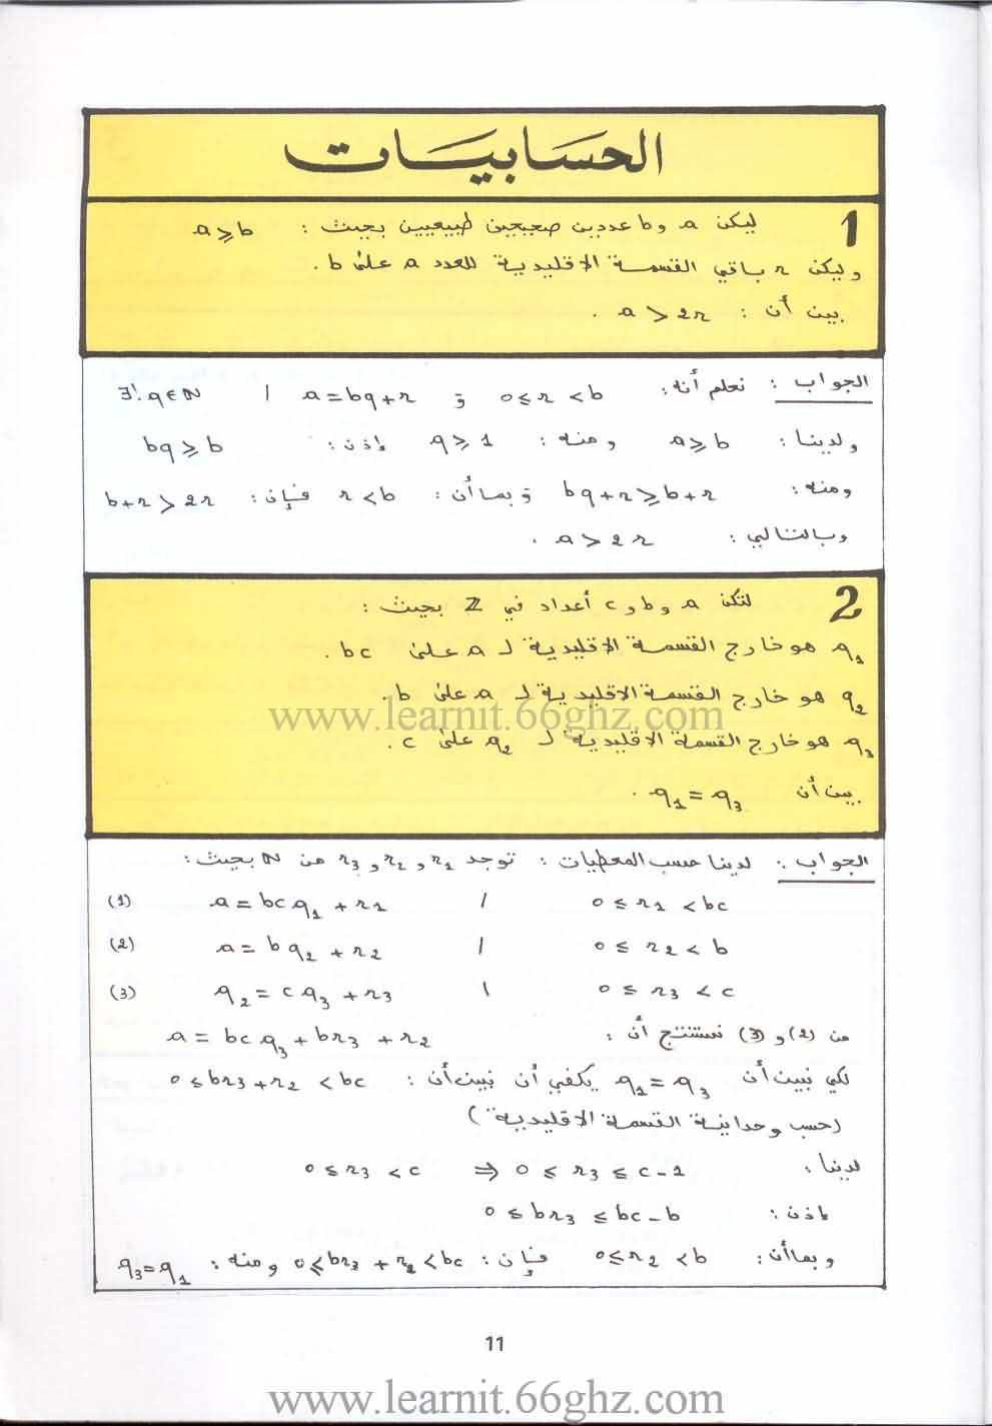 الحسابيات
1 ليكن a و b عددين صحيحين طبيعيين بحيث : a ⩾ b
وليكن r باقي القسمة الاقليدية للعدد a على b .
بين أن : a > 2r .
الجواب : نعلم أنه : 0 ≤ r < b و a = bq + r / ∃! q ∈ ℕ
ولدينا : a ⩾ b ومنه : q ⩾ 1 إذن : bq ⩾ b
ومنه : bq + r ⩾ b + r وبما أن : r < b فإن : b + r > 2r
وبالتالي : a > 2r .
2 لتكن a و b و c أعداد في ℤ بحيث :
q₁ هو خارج القسمة الاقليدية لـ a على bc .
q₂ هو خارج القسمة الاقليدية لـ a على b .
www.learnit.66ghz.com
q₃ هو خارج القسمة الاقليدية لـ q₂ على c .
بين أن q₁ = q₃ .
الجواب : لدينا حسب المعطيات : توجد r₁ و r₂ و r₃ من ℕ بحيث :
0 ≤ r₁ < bc / a = bcq₁ + r₁ (1)
0 ≤ r₂ < b / a = bq₂ + r₂ (2)
0 ≤ r₃ < c / q₂ = cq₃ + r₃ (3)
من (2) و (3) نستنتج أن : a = bcq₃ + br₃ + r₂
لكي نبين أن q₁ = q₃ يكفي أن نبين أن : 0 ≤ br₃ + r₂ < bc
(حسب وحدانية القسمة الاقليدية)
لدينا : 0 ≤ r₃ < c ⇒ 0 ≤ r₃ ≤ c - 1
إذن : 0 ≤ br₃ ≤ bc - b
وبما أن : 0 ≤ r₂ < b فإن : 0 ≤ br₃ + r₂ < bc ومنه : q₃ = q₁
11
www.learnit.66ghz.com